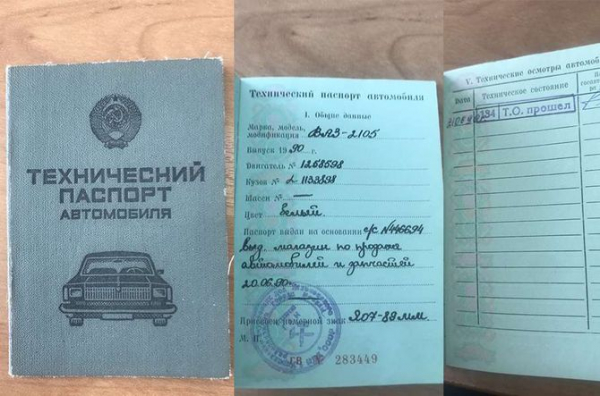 ТЕХНИЧЕСКИЙ
ПАСПОРТ
АВТОМОБИЛЯ
Технический паспорт автомобиля
I. Общие данные
Марка, модель,
модификация ВАЗ-2105
Выпуск 1990 г.
Двигатель № 1268598
Кузов № 1133898
Шасси № —
Цвет белый.
Паспорт выдан на основании с/с №446694
выд. магазин по продаже
автомобилей и запчастей
20.06.90г.
номерной знак 207-89 мм.
М. П.
283449
V. Технические осмотры автомоб
Дата
Техническое состояние
134 Т.О. прошел